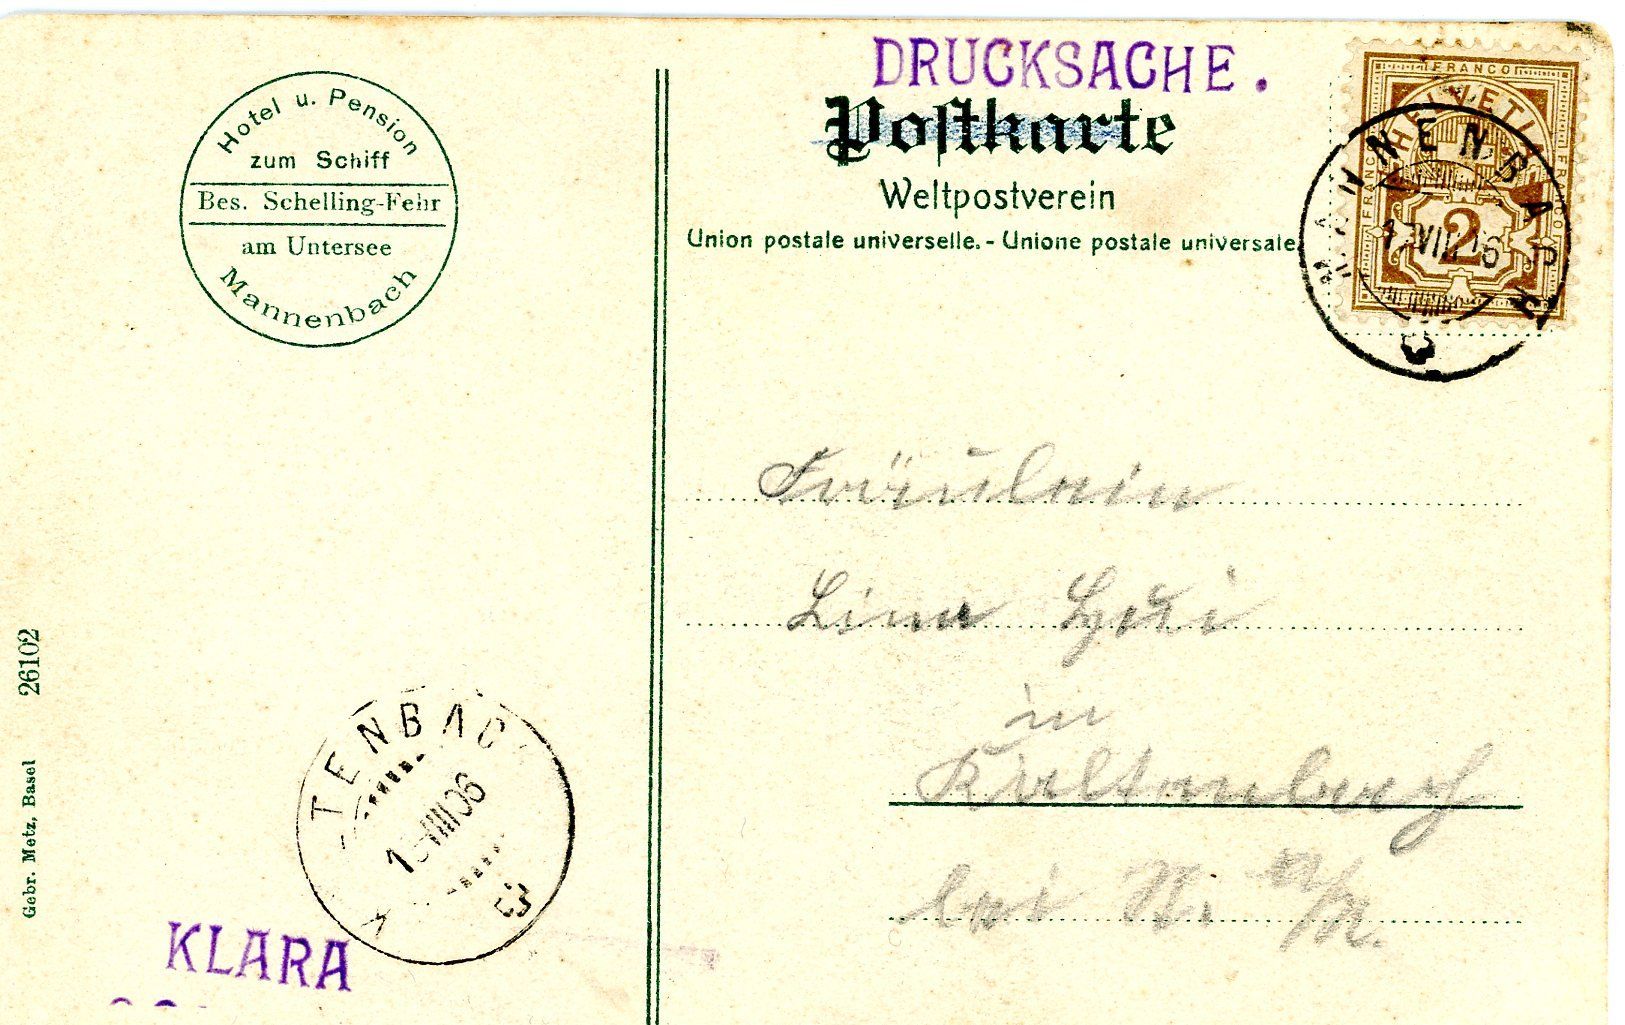 Hotel u. Pension
zum Schiff
Bes. Schelling-Fehr
am Untersee
Mannenbach
DRUCKSACHE.
Postkarte
Weltpostverein
Union postale universelle. - Unione postale universale.
FRANCO
HELVETIA
FRANCO
FRANCO
2
MANNENBACH
VIII 06
Fräulein
Lina
in
Kaltenbach
bei
TENBAC
VIII 06
K
KLARA
Gebr. Metz, Basel 26102